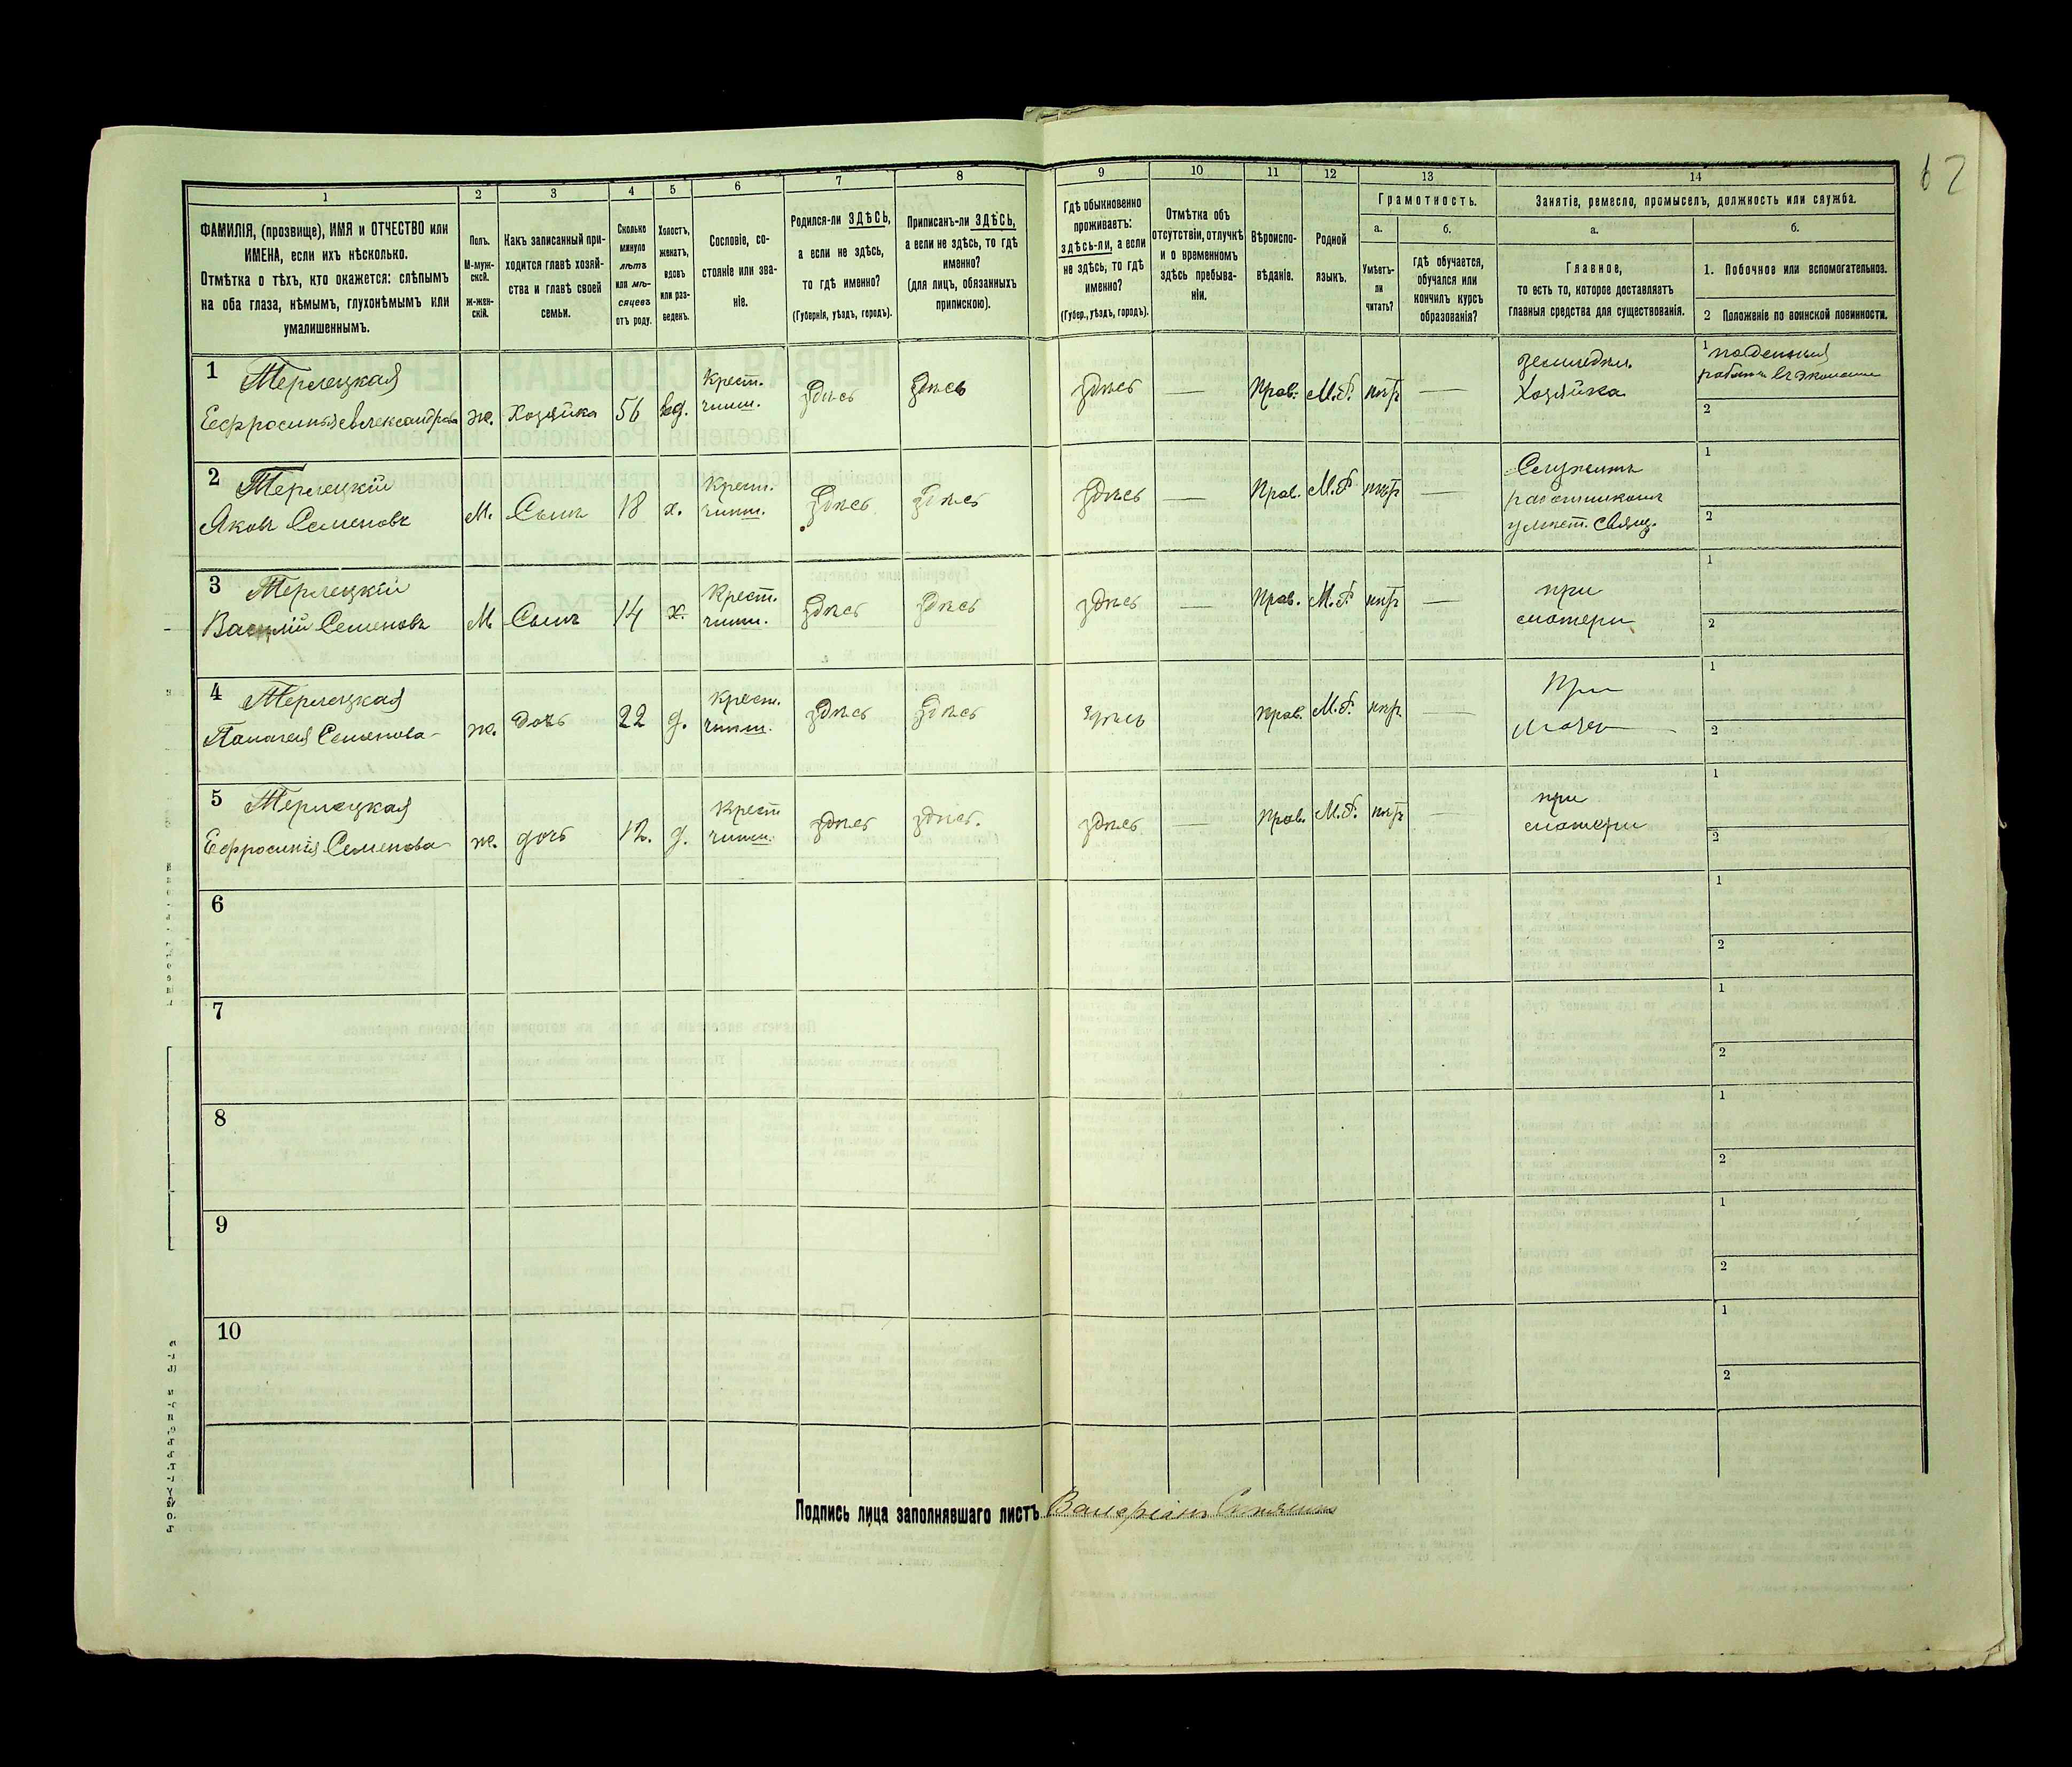 62
1
2
3
4
5
6
7
8
9
10
11
12
13
14
ФАМИЛІЯ, (прозвище), ИМЯ и ОТЧЕСТВО или
ИМЕНА, если ихъ нѣсколько.
Отмѣтка о тѣхъ, кто окажется: слѣпымъ
на оба глаза, нѣмымъ, глухонѣмымъ или
умалишеннымъ.
Полъ.
М-муж-
ской.
Ж-жен-
скій.
Какъ записанный при-
ходится главѣ хозяй-
ства и главѣ своей
семьи.
Сколько
минуло
лѣтъ
или мѣ-
сяцевъ
отъ роду.
Холостъ,
женатъ,
вдовъ
или раз-
веденъ.
Сословіе, со-
стояніе или зва-
ніе.
Родился-ли ЗДѢСЬ,
а если не здѣсь,
то гдѣ именно?
(Губернія, уѣздъ, городъ).
Приписанъ-ли ЗДѢСЬ,
а если не здѣсь, то гдѣ
именно?
(для лицъ, обязанныхъ
припискою).
Гдѣ обыкновенно
проживаетъ:
здѣсь-ли, а если
не здѣсь, то гдѣ
именно?
(Губер., уѣздъ, городъ).
Отмѣтка объ
отсутствіи, отлучкѣ
и о временномъ
здѣсь пребыва-
ніи.
Вѣроиспо-
вѣданіе.
Родной
языкъ.
Грамотность.
а.
Умѣетъ-
ли
читать?
б.
гдѣ обучается,
обучался или
кончилъ курсъ
образованія?
Занятіе, ремесло, промыселъ, должность или служба.
а.
Главное,
то есть то, которое доставляетъ
главныя средства для существованія.
б.
1. Побочное или вспомогательное.
2 Положеніе по воинской повинности.
1 Терлецкая
Ефросинія Александрова ж. Хозяйка 56 вд. Крест. здѣсь здѣсь здѣсь — Прав. М.Р. —
Хозяйка
1 поденныя
2
2 Терлецкій
Яковъ Семеновъ М. Сынъ 18 х. Крест. здѣсь здѣсь здѣсь — Прав. М.Р. —
работникомъ
1
2
3 Терлецкій
Василій Семеновъ М. Сынъ 14 х. Крест. здѣсь здѣсь здѣсь — Прав. М.Р. —
при
матери
1
2
4 Терлецкая
Семенова ж. дочь 22 д. Крест. здѣсь здѣсь здѣсь прав. М.Р. —
При
1
2
5 Терлецкая
Ефросинія Семенова ж. дочь 12. д. Крест здѣсь здѣсь. здѣсь — Прав. М.Р. —
при
матери
1
2
6
1
2
7
1
2
8
1
2
9
1
2
10
1
2
Подпись лица заполнявшаго листъ